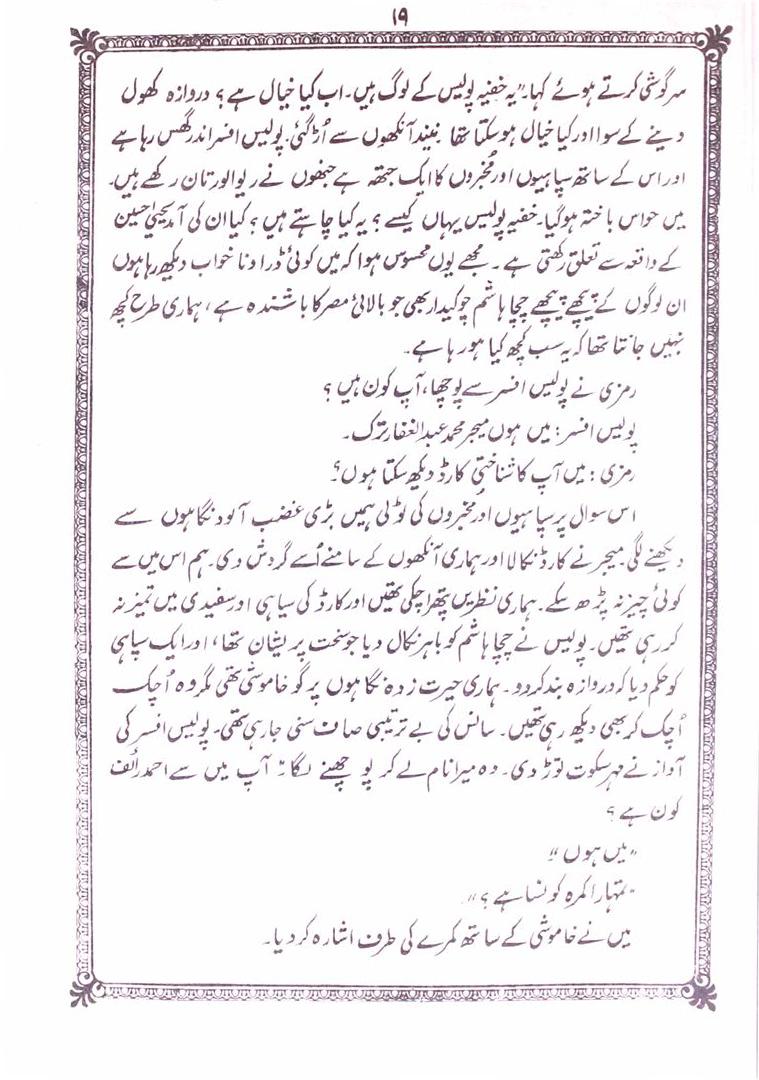 ۱۹
سرگوشی کرتے ہوئے کہا۔ "یہ خفیہ پولیس کے لوگ ہیں۔ اب کیا خیال ہے؟ دروازہ کھول
دینے کے سوا اور کیا خیال ہو سکتا تھا۔ نیند آنکھوں سے اُڑ گئی۔ پولیس افسر اندر گھس رہا ہے
اور اس کے ساتھ سپاہیوں اور مخبروں کا ایک جتھہ ہے جنھوں نے ریوالور تان رکھے ہیں۔
میں حواس باختہ ہو گیا۔ خفیہ پولیس یہاں کیسے؟ یہ کیا چاہتے ہیں؟ کیا ان کی آمد یحییٰ حسین
کے واقعہ سے تعلق رکھتی ہے۔ مجھے یوں محسوس ہوا کہ میں کوئی ڈراؤنا خواب دیکھ رہا ہوں
ان لوگوں کے پیچھے پیچھے چچا ہاشم چوکیدار بھی جو بالائی مصر کا باشندہ ہے، ہماری طرح کچھ
نہیں جانتا تھا کہ یہ سب کچھ کیا ہو رہا ہے۔
رمزی نے پولیس افسر سے پوچھا، آپ کون ہیں؟
پولیس افسر: میں ہوں میجر محمد عبدالغفار ترک۔
رمزی: میں آپ کا شناختی کارڈ دیکھ سکتا ہوں؟
اس سوال پر سپاہیوں اور مخبروں کی ٹولی ہمیں بڑی غضب آلود نگاہوں سے
دیکھنے لگی۔ میجر نے کارڈ نکالا اور ہماری آنکھوں کے سامنے اُسے گردش دی۔ ہم اس میں سے
کوئی چیز نہ پڑھ سکے۔ ہماری نظریں پتھرا چکی تھیں اور کارڈ کی سیاہی اور سفیدی میں تمیز نہ
کر رہی تھیں۔ پولیس نے چچا ہاشم کو باہر نکال دیا جو سخت پریشان تھا، اور ایک سپاہی
کو حکم دیا کہ دروازہ بند کر دو۔ ہماری حیرت زدہ نگاہوں پر گو خاموشی تھی مگر وہ اُچک
اُچک کر بھی دیکھ رہی تھیں۔ سانس کی بے ترتیبی صاف سنی جا رہی تھی۔ پولیس افسر کی
آواز نے مہر سکوت توڑ دی۔ وہ میرا نام لے کر پوچھنے لگا: آپ میں سے احمد رائف
کون ہے؟
"میں ہوں"
"تمہارا کمرہ کونسا ہے؟"۔
میں نے خاموشی کے ساتھ کمرے کی طرف اشارہ کر دیا۔